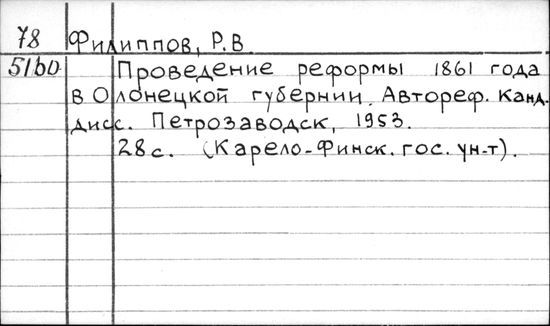 78 Филиппов, Р.В
5160 Проведение реформы 1861 года
в Олонецкой губернии. Автореф. Канд.
дисс. Петрозаводск, 1953.
28 с. (Карело-Финск. гос. ун-т).